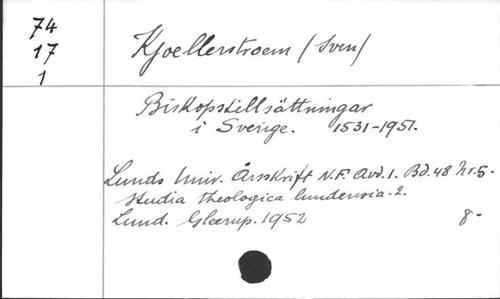 74
17
1
Kjoellerstroem (Sven)
Biskopstillsättningar
i Sverige. 1531-1951.
Lunds Univ. Årsskrift N.F. Avd. 1. Bd. 48 Nr. 5.
Studia theologica lundensia. 2.
Lund. Gleerup. 1952 8-